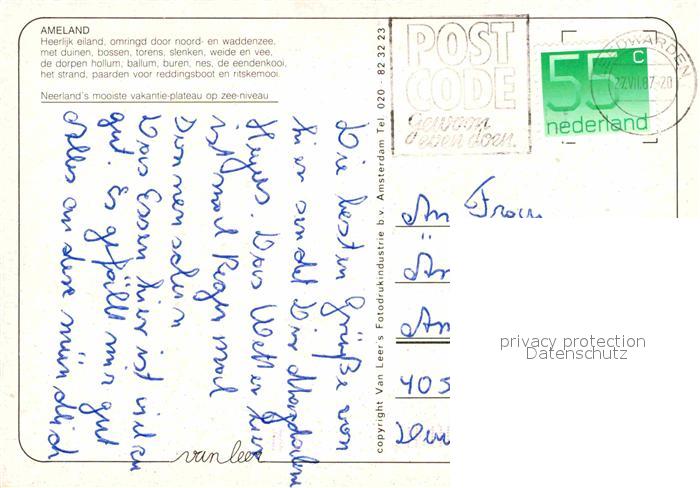 AMELAND
Heerlijk eiland, omringd door noord- en waddenzee,
met duinen, bossen, torens, slenken, weide en vee,
de dorpen hollum, ballum, buren, nes, de eendenkooi,
het strand, paarden voor reddingsboot en ritskemooi.
Neerland's mooiste vakantie-plateau op zee-niveau
Die besten Grüße von
hier sendet Dir Magdalene
Heyes. Das Wetter hier
ist mal Regen mal
Sonnenschein
Das Essen hier ist
gut. Es gefällt mir gut
Alles andere mündlich
van leer
copyright Van Leer's Fotodrukindustrie b.v. Amsterdam Tel. 020 - 82 32 23
POST
CODE
Gewoon
even doen.
55 c
nederland
WARDEN
27.VII.87.-20
An Frau
An
405
privacy protection
Datenschutz